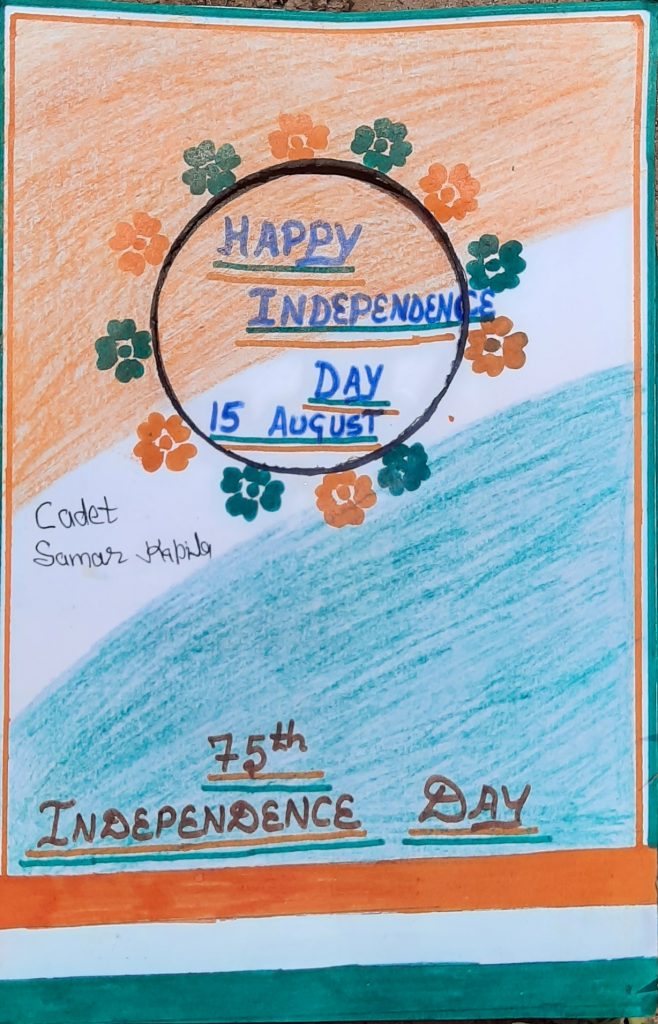 HAPPY
INDEPENDENCE
DAY
15 AUGUST
Cadet
Samar Kapila
75th
INDEPENDENCE DAY